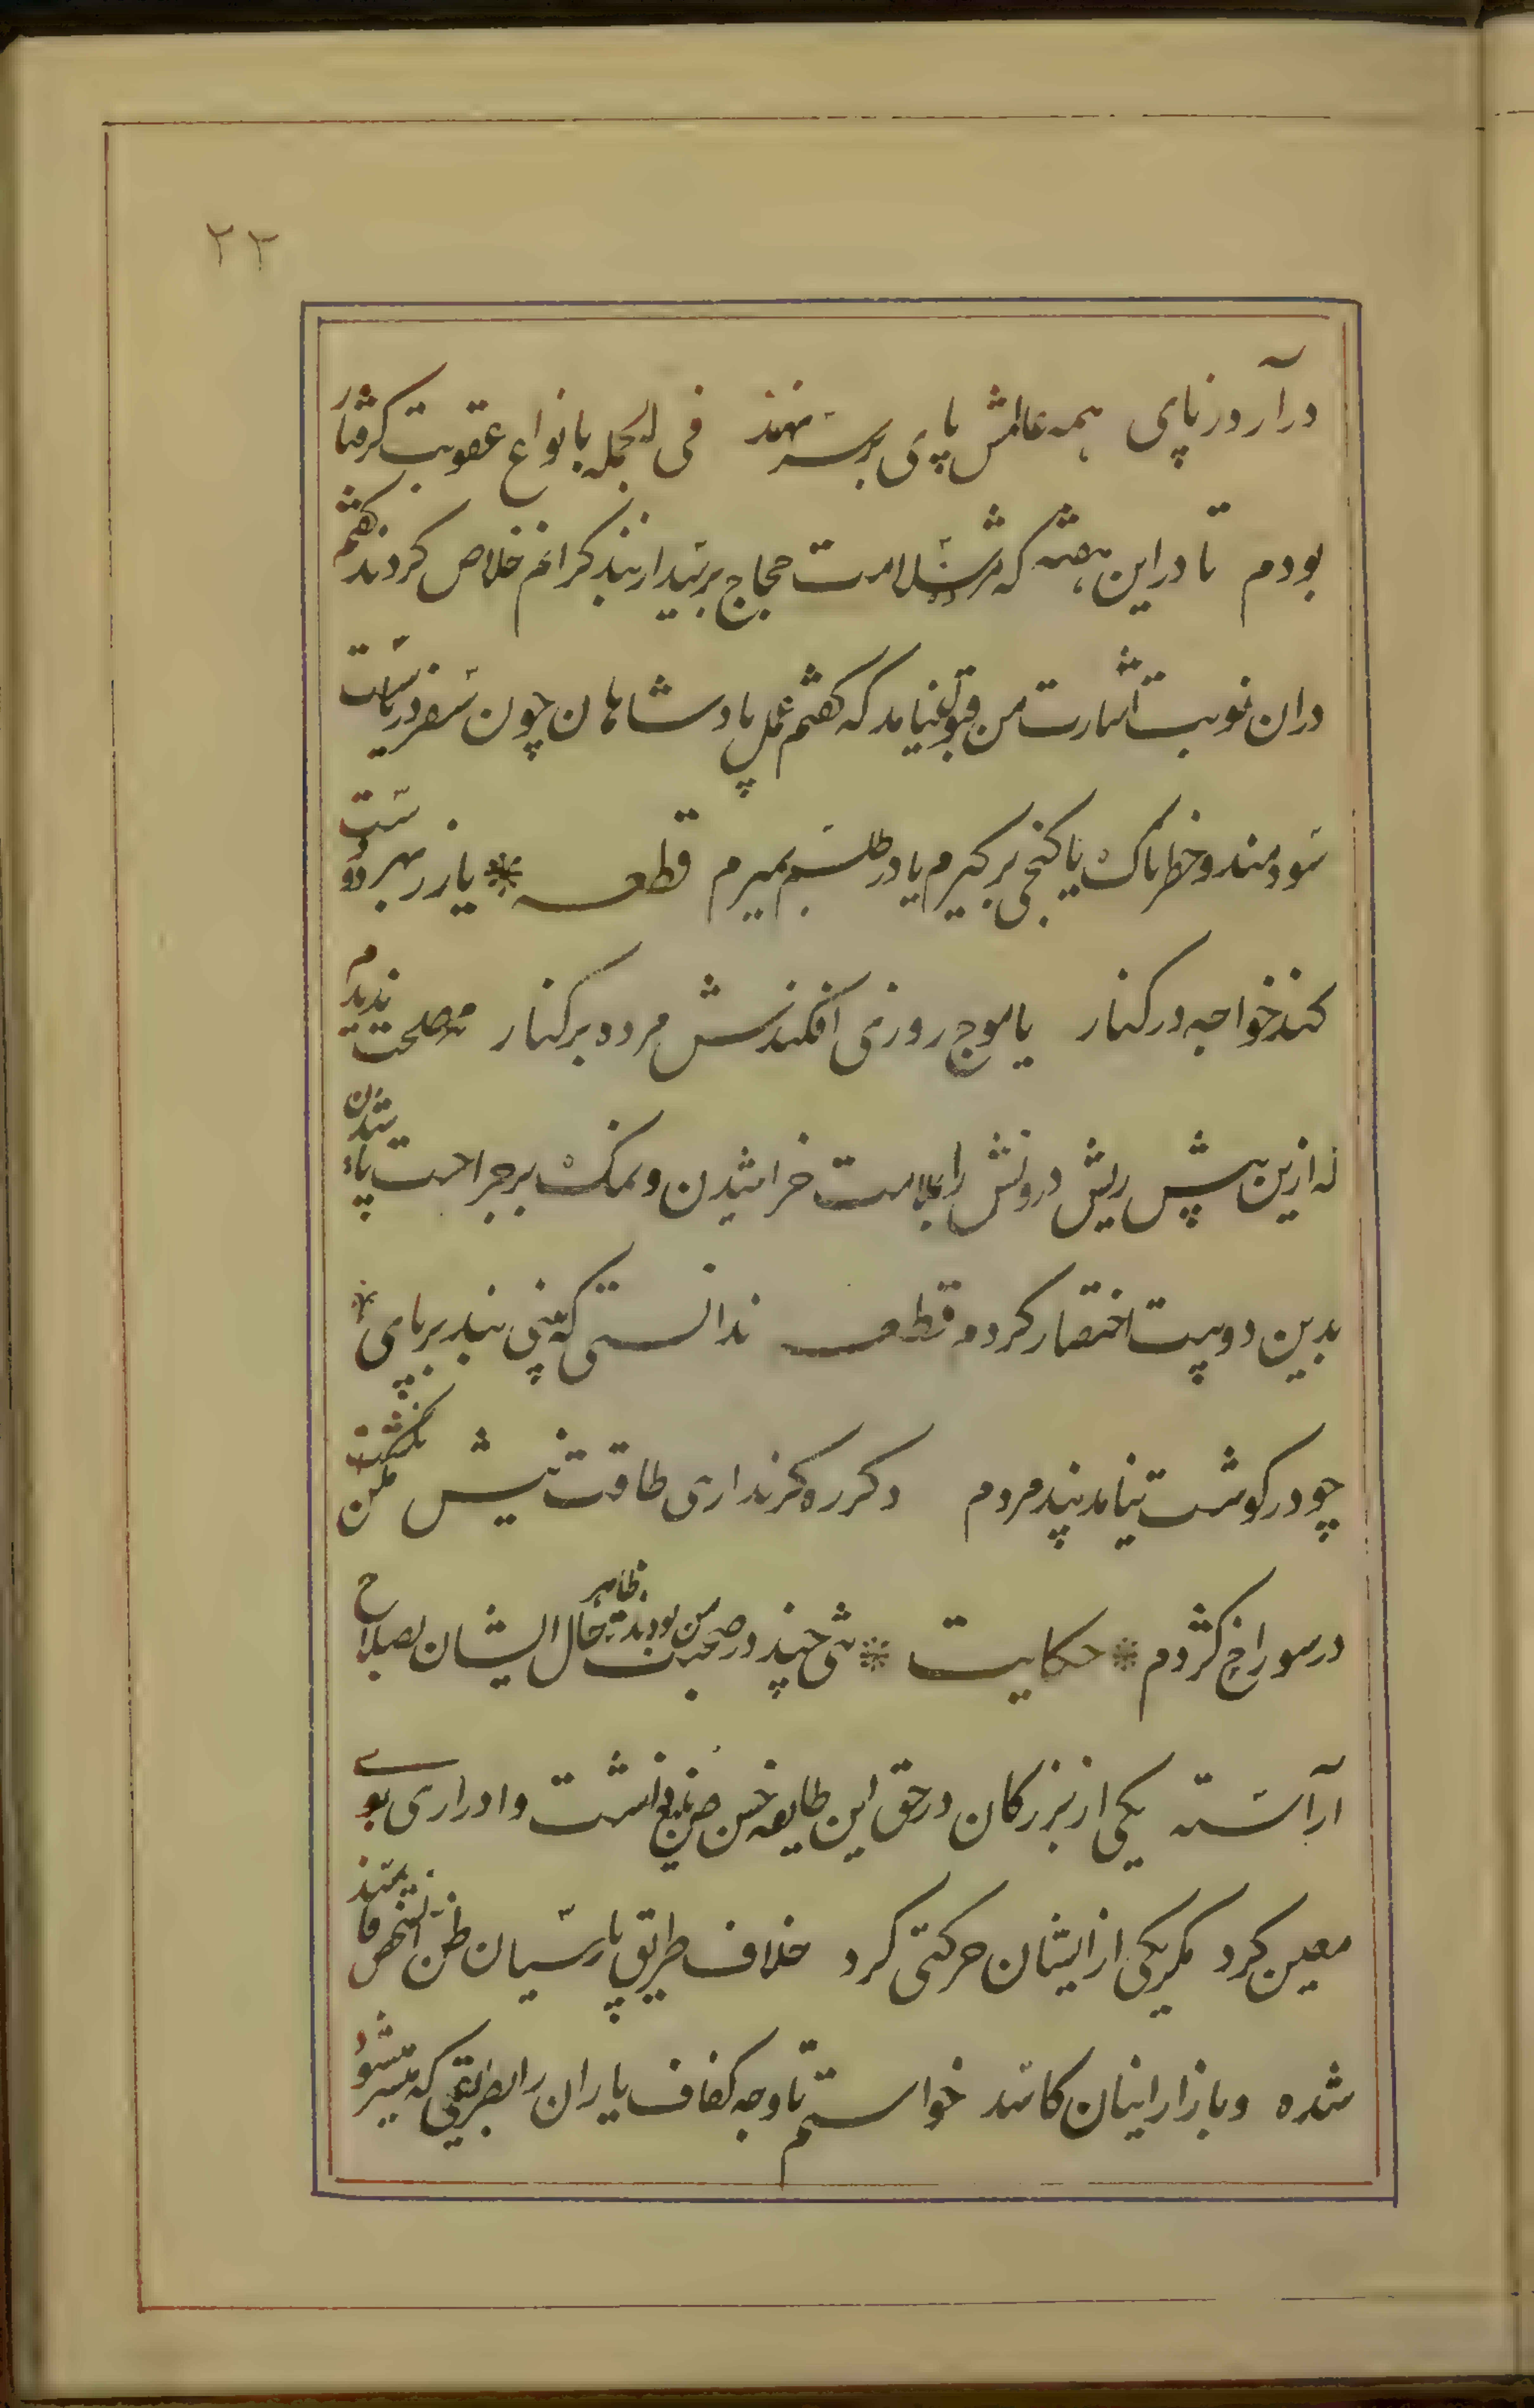 ۲۳
درآرد زپای همه عالمش پای بر سر نهند فی الجمله بانواع عقوبت کرفتار
بودم تا دراین هفته که مژده سلامت حجاج برسید از بند کرانم خلاص کردند کفتم
دران نوبت اشارت من قبولت نیامد که کفتم عمل پادشاهان چون سفر دریاست
سودمند و خطرناک یا کنجی برکیرم یا در طلسم بمیرم قطعه * یا زر بهر دو دست
کند خواجه در کنار یا موج روزی افکندش مرده بر کنار مصلحت ندیدم
که ازین بیش ریش درونش را بملامت خراشیدن و نمک بر جراحت پاشیدن
بدین دو بیت اختصار کردم قطعه ندانستی که بینی بند بر پای *
چو در کوشت نیامد پند مردم دکر ره کر نداری طاقت نیش مکن انکشت
در سوراخ کژدم * حکایت * تنی چند در صحبت من بودند ظاهر حال ایشان بصلاح
آراسته یکی از بزرکان در حق این طایفه حسن ظن بلیغ داشت و ادراری
معین کرد مکر یکی از ایشان حرکتی کرد خلاف طریق پارسیان ظن آنشخص فاسد
شده و بازار اینان کاسد خواستم تا وجه کفاف یاران را بطریقی که میسر شود